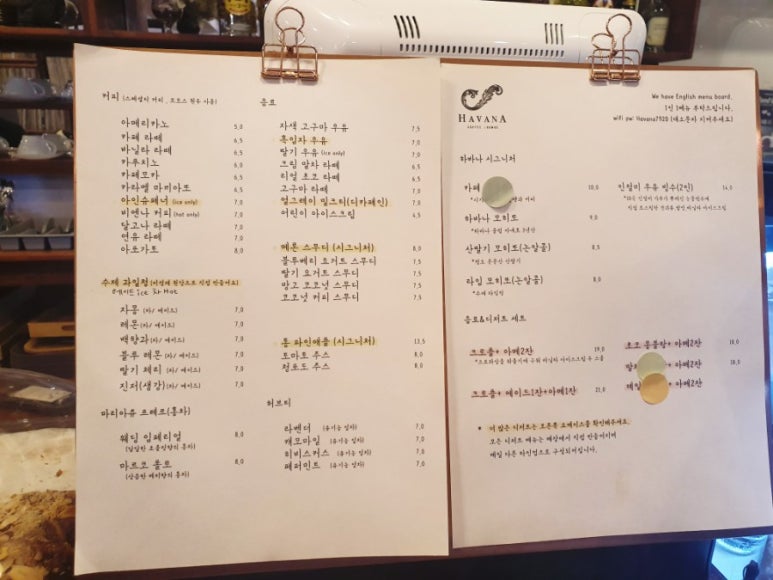 커피 (스페셜티 커피, 프로스 원두 사용)
아메리카노 5,0
카페 라떼 6,5
바닐라 라떼 6,5
카푸치노 6,5
카페모카 6,5
카라멜 마리아토 6,5
아인슈페너 (ice only) 7,0
비엔나 커피 (hot only) 7,0
달고나 라떼 7,0
연유 라떼 7,0
아포가토 8,0
수제 과일청
에이드 ice 차 Hot
자몽 (차/ 에이드) 7,0
레몬 (차/ 에이드) 7,0
백향과 (차/ 에이드) 7,0
블루 레몬 (차/ 에이드) 7,0
딸기 체리 (차/ 에이드) 7,0
진저(생강) (차/ 에이드) 7,0
마리아쥬 프레르(홍차)
웨딩 임페리얼 8,0
마르코 폴로 8,0
음료
자색 고구마 우유 7,5
흑임자 우유 7,0
딸기 우유 (ice only) 7,0
크림 말차 라떼 6,5
리얼 초코 라떼 6,5
고구마 라떼 7,0
얼그레이 밀크티(디카페인) 7,0
어린이 아이스크림 4,5
메론 스무디 (시그니처) 8,0
블루베리 요거트 스무디 7,5
딸기 요거트 스무디 7,5
망고 코코넛 스무디 7,5
코코넛 커피 스무디 7,5
통 파인애플 (시그니처) 13,5
토마토 주스 8,0
청포도 주스 8,0
허브티
라벤더 (유기농 잎차) 7,0
캐모마일 (유기농 잎차) 7,0
히비스커스 (유기농 잎차) 7,0
페퍼민트 (유기농 잎차) 7,0
HAVANA
COFFEE
We have English menu board.
1인 1메뉴 부탁드립니다.
wifi pw: Havana7920 (대소문자 지켜주세요)
하바나 시그니처
카페 10,0
하바나 모히토 9,0
산딸기 모히토(논알콜) 8,5
라임 모히토(논알콜) 8,0
*수제 라임청
인절미 우유 빙수(2인) 14,0
음료&디저트 세트
크로플+ 아메2잔 19,0
크로플+ 에이드1잔+아메1잔 21,0
+ 아메2잔 18,0
+ 아메2잔 18,0
+ 아메2잔
* 더 많은 디저트는 오른쪽 쇼케이스를 확인해주세요.
모든 디저트 메뉴는 매장에서 직접 만들어지며
매일 다른 라인업으로 구성되어집니다.